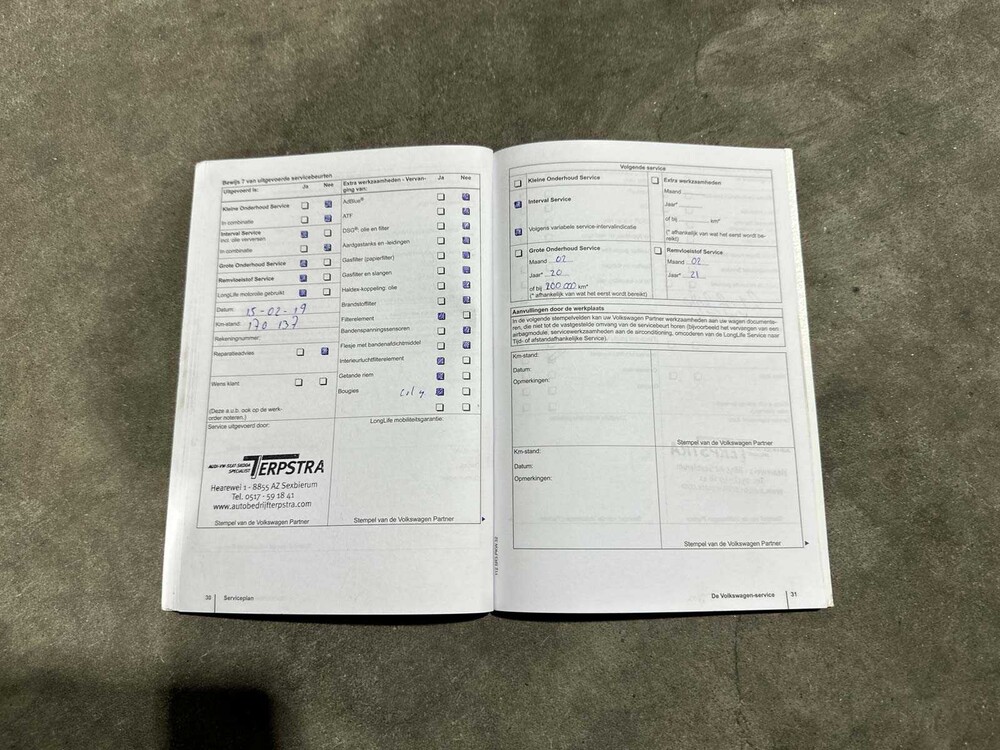 Bewijs 7 van uitgevoerde servicebeurten
Uitgevoerd is:
Ja
Nee
Kleine Onderhoud Service
In combinatie
Interval Service
incl. olie verversen
In combinatie
Grote Onderhoud Service
Remvloeistof Service
LongLife motorolie gebruikt
Datum: 15-02-19
Km-stand: 170 137
Rekeningnummer:
Reparatieadvies
Wens klant:
(Deze a.u.b. ook op de werk-
order noteren.)
Service uitgevoerd door:
AUDI-VW-SEAT-SKODA
SPECIALIST
TERPSTRA
Hearewei 1 - 8855 AZ Sexbierum
Tel. 0517 - 59 18 41
www.autobedrijfterpstra.com
Stempel van de Volkswagen Partner
Extra werkzaamheden - Vervan-
ging van:
Ja
Nee
AdBlue®
ATF
DSG®: olie en filter
Aardgastanks en -leidingen
Gasfilter (papierfilter)
Gasfilter en slangen
Haldex-koppeling: olie
Brandstoffilter
Filterelement
Bandenspanningssensoren
Flesje met bandenafdichtmiddel
Interieurluchtfilterelement
Getande riem
Bougies
LongLife mobiliteitsgarantie:
Stempel van de Volkswagen Partner
Serviceplan
Volgende service
Kleine Onderhoud Service
Interval Service
Volgens variabele service-intervalindicatie
Grote Onderhoud Service
Maand 02
Jaar* 20
of bij 200.000 km*
(* afhankelijk van wat het eerst wordt bereikt)
Extra werkzaamheden
Maand
Jaar*
of bij km*
(* afhankelijk van wat het eerst wordt be-
reikt)
Remvloeistof Service
Maand 02
Jaar* 21
Aanvullingen door de werkplaats
In de volgende stempelvelden kan uw Volkswagen Partner werkzaamheden aan uw wagen documente-
ren, die niet tot de vastgestelde omvang van de servicebeurt horen (bijvoorbeeld het vervangen van een
airbagmodule, servicewerkzaamheden aan de airconditioning, omcoderen van de LongLife Service naar
Tijd- of afstandafhankelijke Service).
Km-stand:
Datum:
Opmerkingen:
Stempel van de Volkswagen Partner
Km-stand:
Datum:
Opmerkingen:
Stempel van de Volkswagen Partner
De Volkswagen-service
31